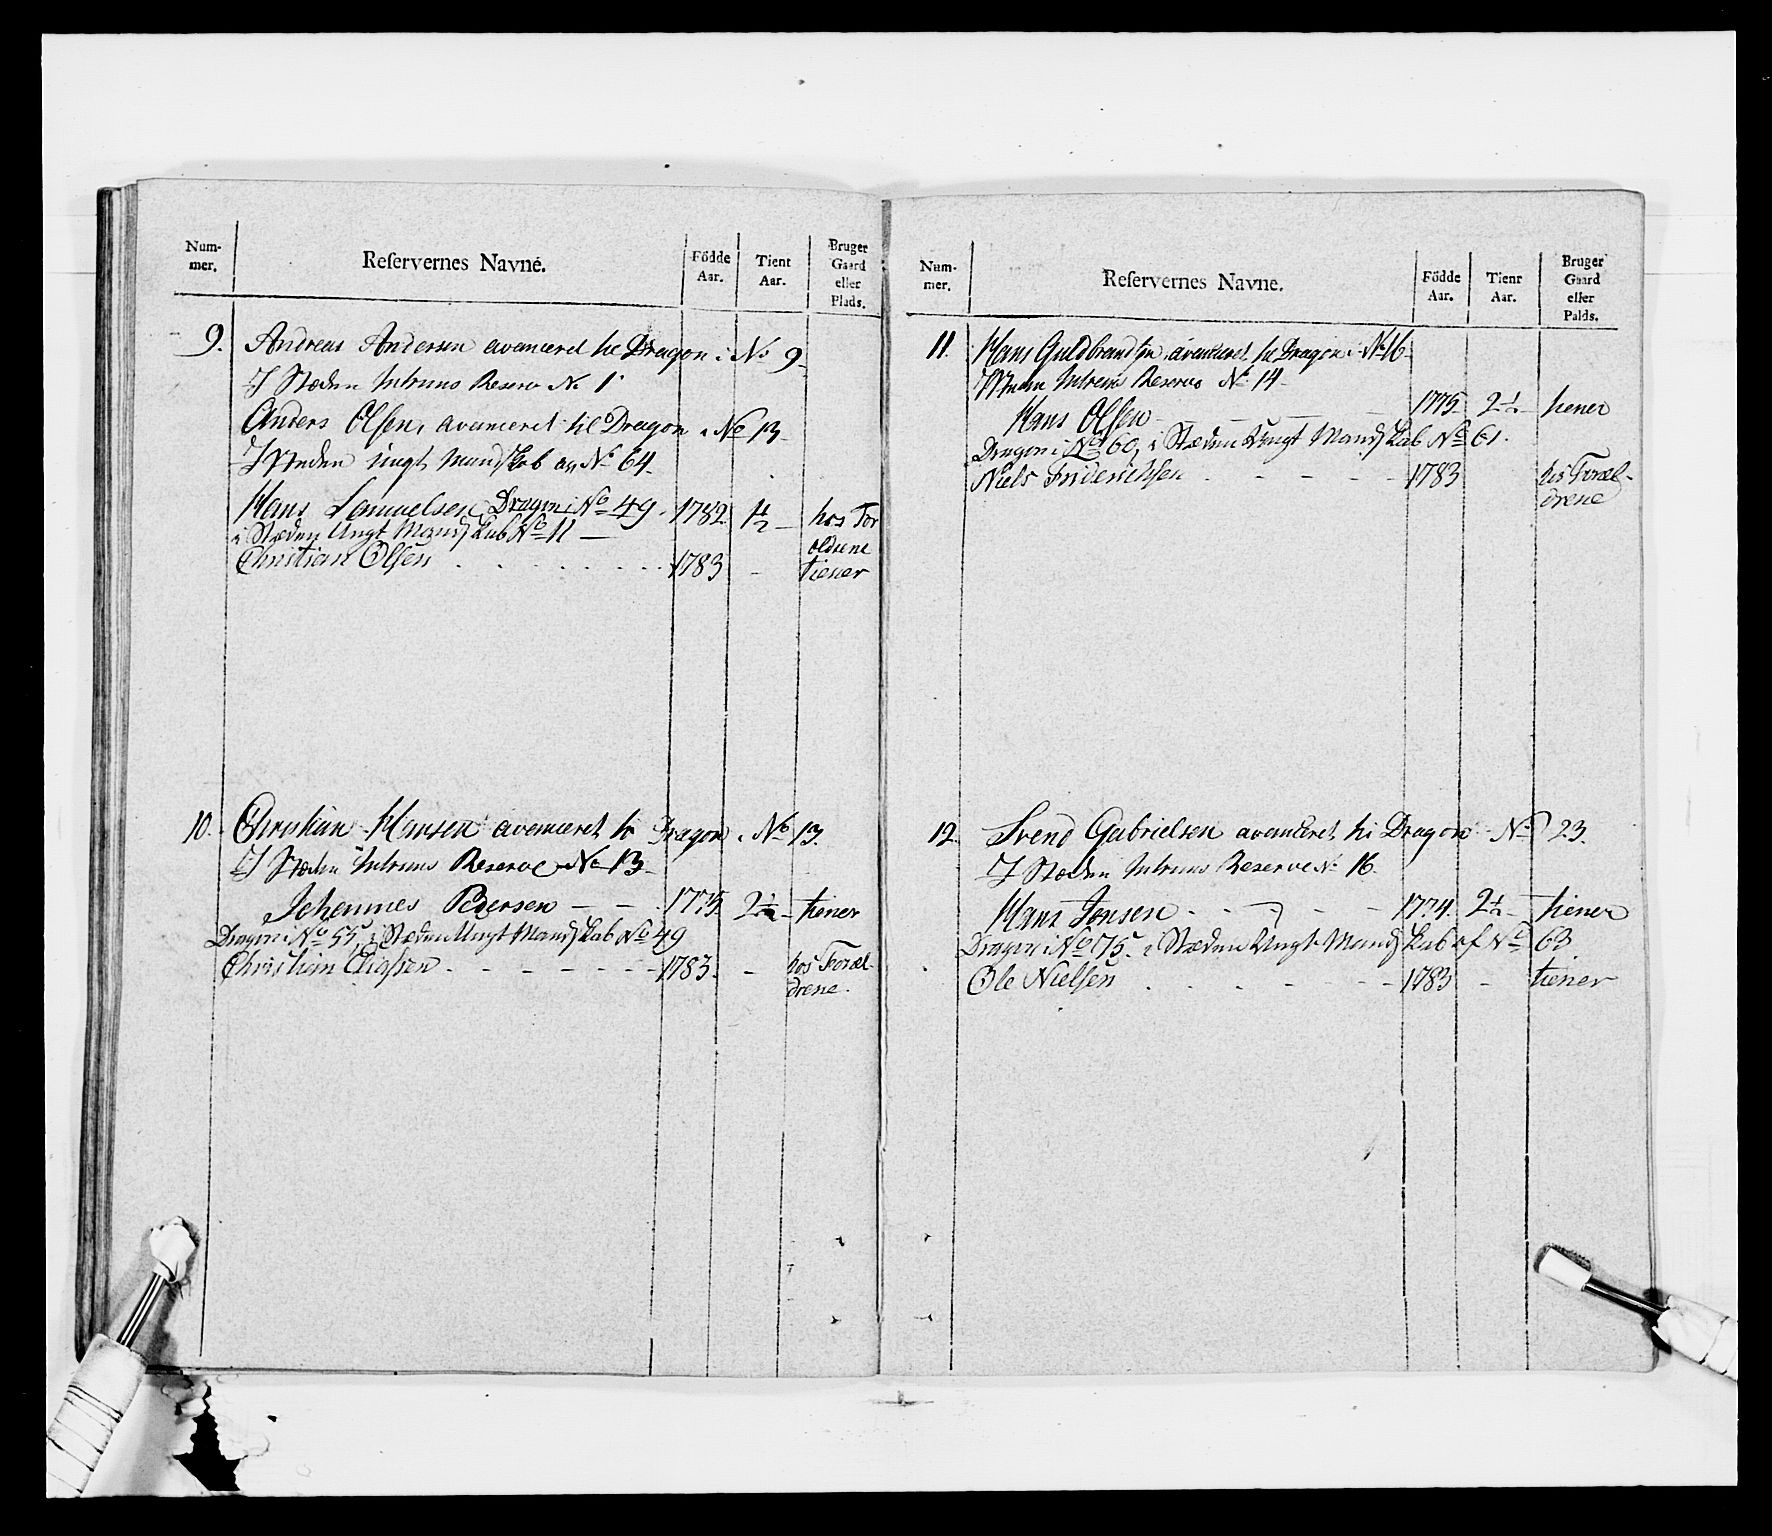 Num-
mer.
Reservernes Navne.
Födde
Aar.
Tient
Aar.
Bruger
Gaard
eller
Plads.
9. Andreas Andersen avanceret til Dragon i No 9
I Stæden Intrens Reserve No 1
Anders Olsen, avanceret til Dragon i No 13
I Stæden ungt Mandskab av No 64
Hans Samuelsen Dragon i No 49. 1782 1½ hos For
i Stæden Ungt Mandskab No 11 — ældrene
Christian Olsen 1783 - tiener
10. Christian Hansen avanceret til Dragon i No 13.
I Stæden Reserve No 13
Johannes Pedersen — — 1775 2½ tiener
Dragon i No 55, i Stæden Ungt Mandskab No 49
Christian Eliassen 1783. - hos Foræl-
drene.
Num-
mer.
Reservernes Navne.
Födde
Aar.
Tienr
Aar.
Bruger
Gaard
eller
Palds.
11. Hans Guldbrandsen avanceret til Dragon i No 16
Reserve No 14
Hans Olsen 1775 2½ tiener
Dragon i No 60, i Stæden Ungt Mandskab No 61.
Niels Friderichsen 1783 hos Foræl-
drene
12. Svend Gabrielsen avanceret til Dragon No 23.
I Stæden Reserve No 16
Hans Jonsen 1774. 2½ tiener
Dragon i No 75. i Stæden Ungt Mandskab af No 63
Ole Nielsen 1783 - tiener